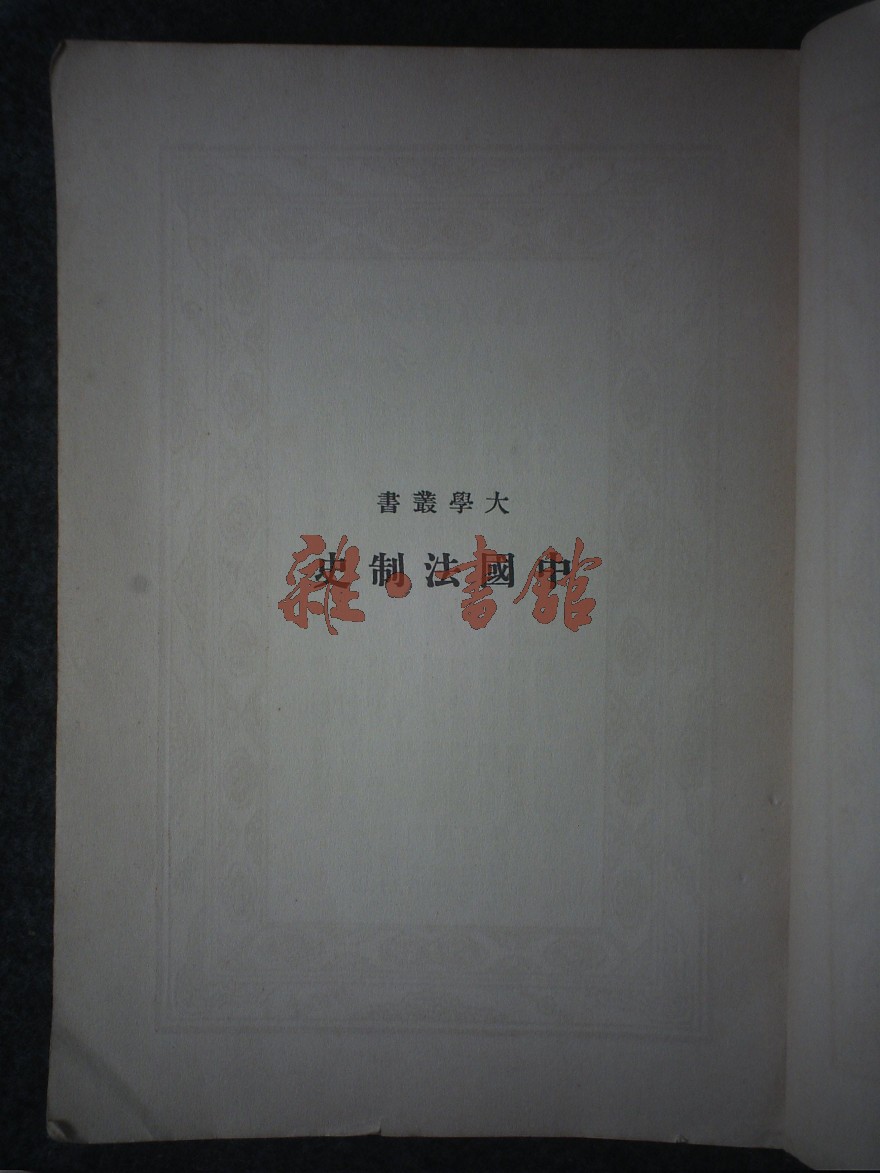 大學叢書
中國法制史
雜·書館